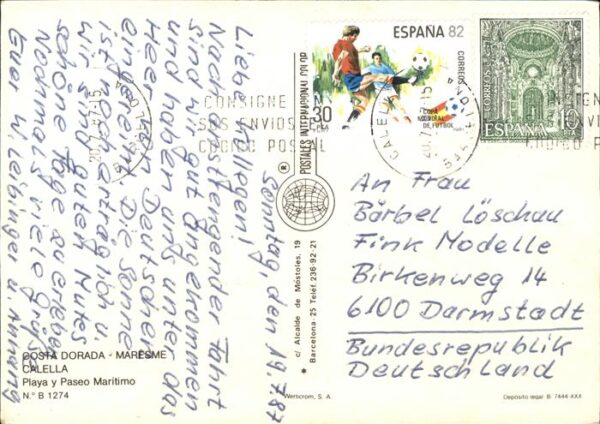 Sonntag, den 19.7.87
Liebe Kollegen!
Nach anstrengender Fahrt
sind wir gut angekommen
und haben uns unter das
Heer von Deutschen
eingereiht. Die Sonne
ist noch erträglich u.
wir sind guten Mutes
schöne Tage zu erleben
Nochmals viele Grüße
Euer W. u.
COSTA DORADA - MARESME
CALELLA
Playa y Paseo Marítimo
N.° B 1274
POSTALES INTERNACIONAL COLOR
®
c/ Alcalde de Móstoles, 19
Barcelona-25 Teléf. 236-92-21
CONSIGNE EN
SUS ENVIOS EL
CODIGO POSTAL
CALELLA
ESPAÑA 82
CORREOS
30
PTA
COPA
MUNDIAL
DE FUTBOL
CORREOS
ESPAÑA
10
PTA
An Frau
Bärbel Löschau
Fink Modelle
Birkenweg 14
6100 Darmstadt
Bundesrepublik
Deutschland
S. A.
Depósito legal B. 7444-XXX